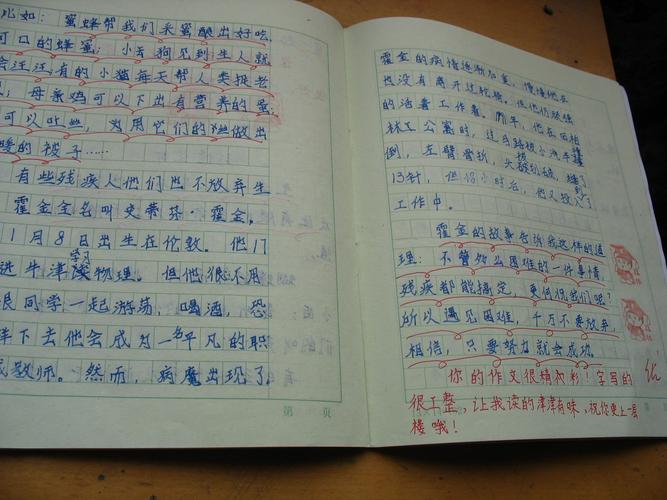 比如：蜜蜂帮我们采蜜酿出好吃、
可口的蜂蜜，小狗见到生人就
会汪汪，有的小猫每天帮人类捉老
，母亲鸡可以下出有营养的蛋，
可以吃些，为用它们的做出
暖的被子……
有些残疾人他们也不放弃生
霍金全名叫史蒂芬·霍金。
1月8日出生在伦敦。他17
进牛津学习读物理。但他很不用
良同学一起游荡，喝酒，恐
样下去他会成为一名平凡的职
或教师。然而，病魔出现了
第 页
霍金的病情逐渐加重，慢慢他
也没有离开过轮椅。但他仍顽强
的活着工作着。年，他在回柏
林工公寓时，过马路被小汽车撞
倒，左臂骨折，头被划破，缝了
13针，但48小时后，他又投入到
工作中。
霍金的故事告诉我这样的道
理：不管如么困难的一件事情，
残疾都能搞定，更何况我们呢？
所以遇见困难，千万不要放弃，
相信，只要努力就会成功。
优
你的作文很精彩！字写的
很工整，让我读的津津有味，祝你更上一层
楼哦！
第 页